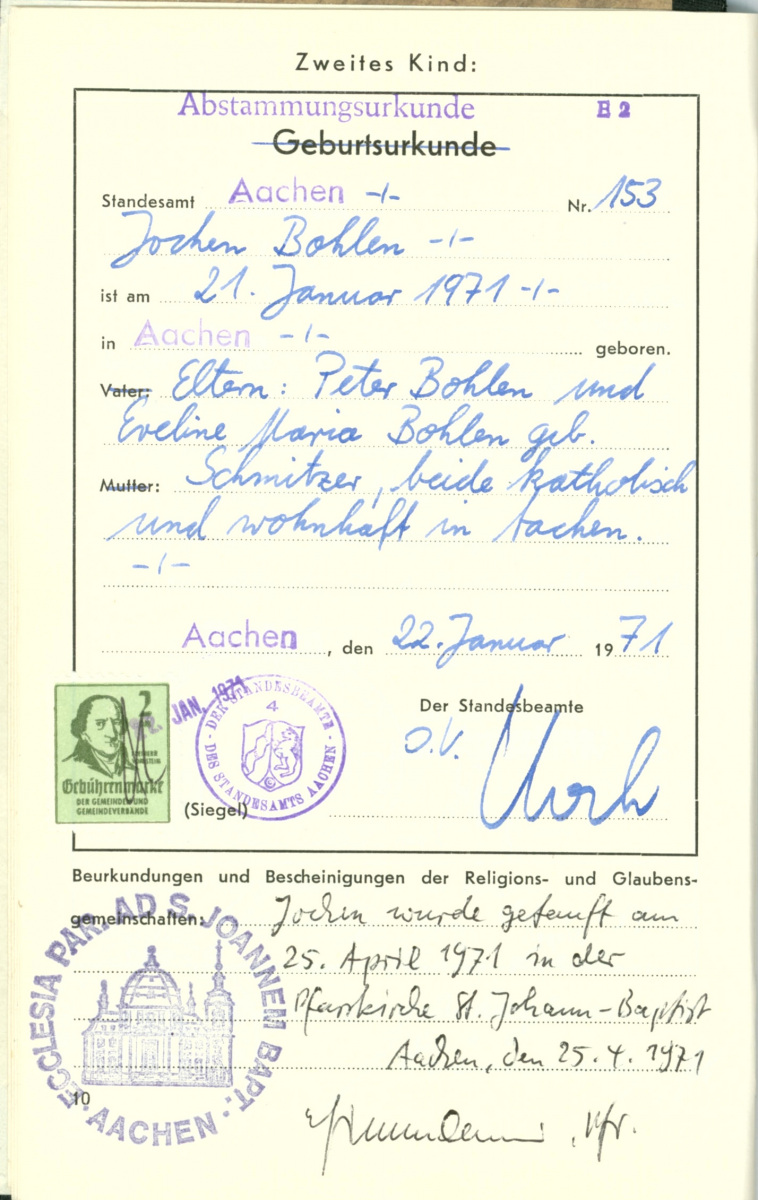 Zweites Kind:
Abstammungsurkunde E 2
Geburtsurkunde
Standesamt Aachen -/- Nr. 153
Jochen Bohlen -/-
ist am 21. Januar 1971 -/-
in Aachen -/- geboren.
Vater: Eltern: Peter Bohlen und
Eveline Maria Bohlen geb.
Mutter: Schmitzer, beide katholisch
und wohnhaft in Aachen.
-/-
Aachen, den 22. Januar 1971
Der Standesbeamte
2
JAN. 1971
Gebührenmarke
DER GEMEINDEN UND
GEMEINDEVERBÄNDE
- DER STANDESBEAMTE -
4
DES STANDESAMTS AACHEN
(Siegel)
Beurkundungen und Bescheinigungen der Religions- und Glaubens-
gemeinschaften: Jochen wurde getauft am
25. April 1971 in der
Pfarrkirche St. Johann-Baptist
Aachen, den 25.4.1971
Pfr.
ECCLESIA PAR. AD S. JOANNEM BAPT.
AACHEN
10